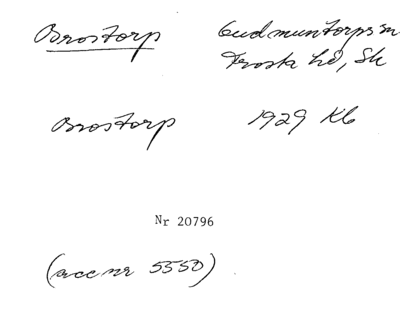 Brostorp Gudmuntorps sn
Frosta hd, Sk
Brostorp 1929 Kb
Nr 20796
(acc nr 5550)